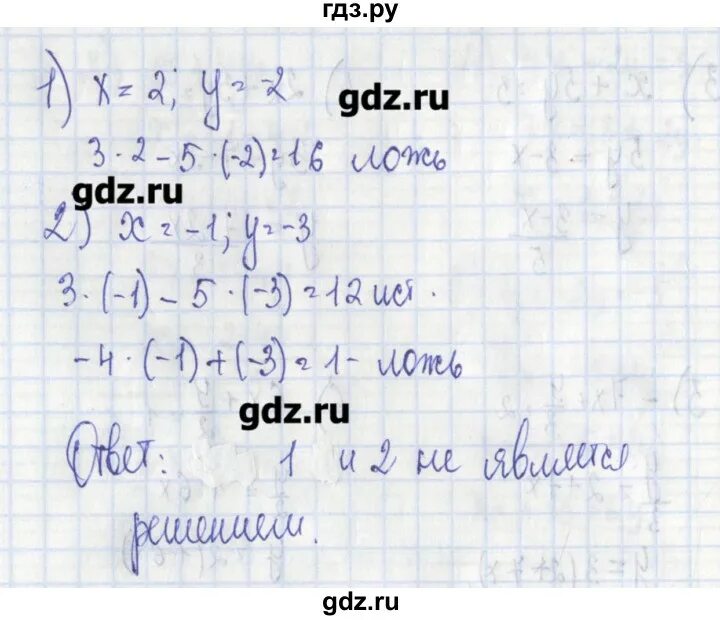 гдз.ру
1) x = 2; y = -2
gdz.ru
3 · 2 - 5 · (-2) = 16 ложь
gdz.ru
2) x = -1; y = -3
3 · (-1) - 5 · (-3) = 12 ист.
-4 · (-1) + (-3) = 1 - ложь
gdz.ru
Ответ: 1 и 2 не является
решением.
gdz.ru